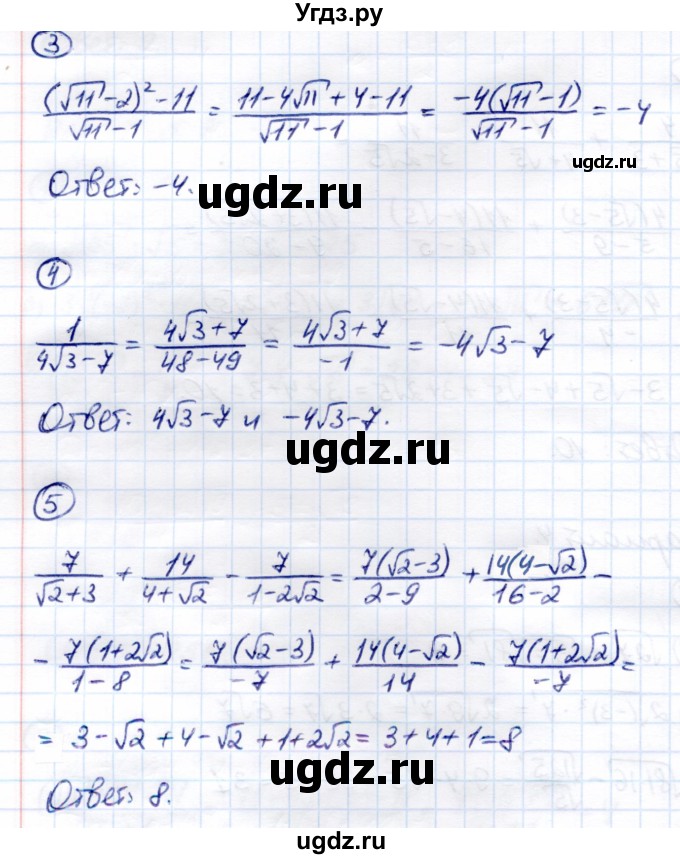 Угдз.ру
3
(√11 - 2)² - 11 / √11 - 1 = 11 - 4√11 + 4 - 11 / √11 - 1 = -4(√11 - 1) / √11 - 1 = -4
Ответ: -4.
ugdz.ru
4
1 / 4√3 - 7 = 4√3 + 7 / 48 - 49 = 4√3 + 7 / -1 = -4√3 - 7
Ответ: 4√3 - 7 и -4√3 - 7.
ugdz.ru
5
7 / √2 + 3 + 14 / 4 + √2 - 7 / 1 - 2√2 = 7(√2 - 3) / 2 - 9 + 14(4 - √2) / 16 - 2 -
- 7(1 + 2√2) / 1 - 8 = 7(√2 - 3) / -7 + 14(4 - √2) / 14 - 7(1 + 2√2) / -7 =
= 3 - √2 + 4 - √2 + 1 + 2√2 = 3 + 4 + 1 = 8
ugdz.ru
Ответ: 8.
ugdz.ru